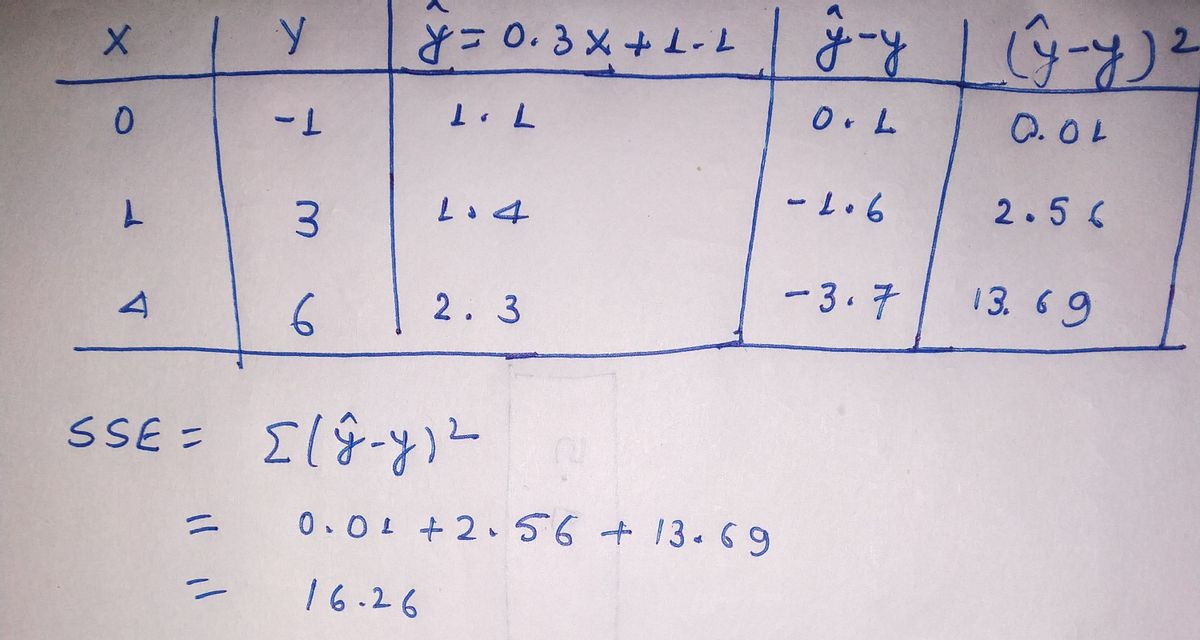 X | Y | ŷ = 0.3x + 1.1 | ŷ-y | (ŷ-y)²
0 | -1 | 1.1 | 0.1 | 0.01
1 | 3 | 1.4 | -1.6 | 2.56
4 | 6 | 2.3 | -3.7 | 13.69
SSE = Σ(ŷ-y)²
= 0.01 + 2.56 + 13.69
= 16.26